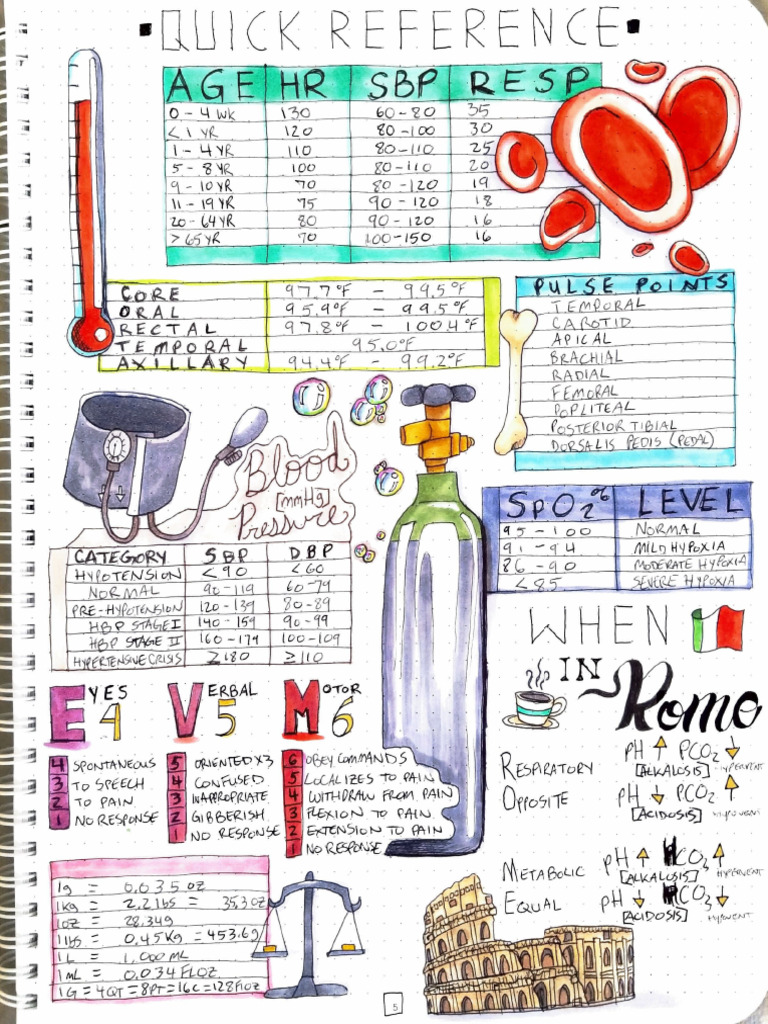 QUICK REFERENCE
AGE HR SBP RESP
0-4 WK 130 60-80 35
<1 YR 120 80-100 30
1-4 YR 110 80-110 25
5-8 YR 100 80-110 20
9-10 YR 70 80-120 19
11-19 YR 75 90-120 18
20-64 YR 80 90-120 16
>65 YR 70 100-150 16
CORE 97.7°F - 99.5°F
ORAL 95.9°F - 99.5°F
RECTAL 97.8°F - 100.4°F
TEMPORAL 95.0°F
AXILLARY 94.4°F - 99.2°F
PULSE POINTS
TEMPORAL
CAROTID
APICAL
BRACHIAL
RADIAL
FEMORAL
POPLITEAL
POSTERIOR TIBIAL
DORSALIS PEDIS (PEDAL)
Blood
[mmHg]
Pressure
CATEGORY SBP DBP
HYPOTENSION <90 <60
NORMAL 90-119 60-79
PRE-HYPOTENSION 120-139 80-89
HBP STAGE I 140-159 90-99
HBP STAGE II 160-179 100-109
HYPERTENSIVE CRISIS ≥180 ≥110
SpO2% LEVEL
95-100 NORMAL
91-94 MILD HYPOXIA
86-90 MODERATE HYPOXIA
<85 SEVERE HYPOXIA
WHEN
IN Rome
EYES 4
4 SPONTANEOUS
3 TO SPEECH
2 TO PAIN
1 NO RESPONSE
VERBAL 5
5 ORIENTED X3
4 CONFUSED
3 INAPPROPRIATE
2 GIBBERISH
1 NO RESPONSE
MOTOR 6
6 OBEY COMMANDS
5 LOCALIZES TO PAIN
4 WITHDRAW FROM PAIN
3 FLEXION TO PAIN
2 EXTENSION TO PAIN
1 NO RESPONSE
RESPIRATORY
OPPOSITE
pH ↑ PCO2 ↓
[ALKALOSIS] HYPERVENT
pH ↓ PCO2 ↑
[ACIDOSIS] HYPOVENT
METABOLIC
EQUAL
pH ↑ HCO3 ↑
[ALKALOSIS] HYPERVENT
pH ↓ HCO3 ↓
[ACIDOSIS] HYPOVENT
1g = 0.035oz
1kg = 2.2lbs = 35.3oz
1oz = 28.34g
1lbs = 0.45Kg = 453.6g
1L = 1,000mL
1mL = 0.034FLOZ
1G = 4QT = 8PT = 16C = 128FlOZ
5